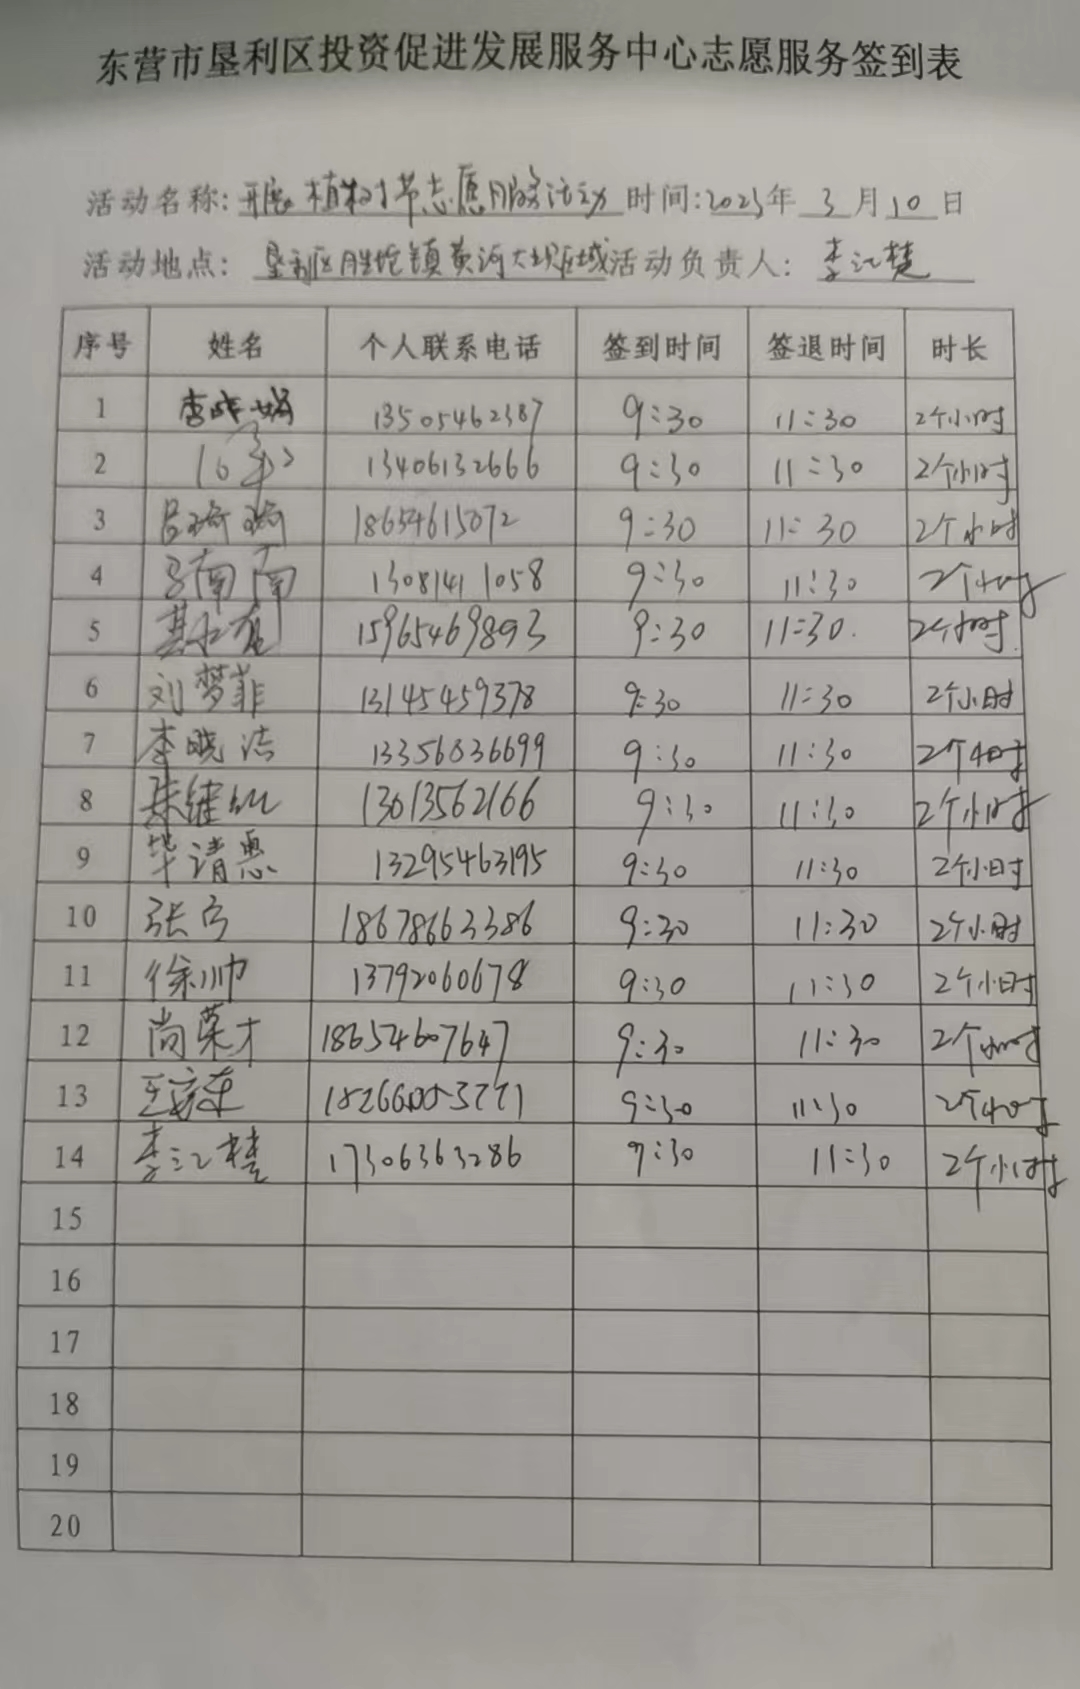 东营市垦利区投资促进发展服务中心志愿服务签到表
活动名称: 开展植树节志愿服务活动 时间:2023年 3 月 10 日
活动地点: 垦利区胜坨镇黄河大坝区域 活动负责人: 李江楚
序号 姓名 个人联系电话 签到时间 签退时间 时长
1 13505462387 9:30 11:30 2个小时
2 13406132666 9:30 11:30 2个小时
3 吕琦琦 18654615072 9:30 11:30 2个小时
4 南南 13081411058 9:30 11:30 2个小时
5 15965469893 9:30 11:30. 2个小时
6 刘梦菲 13145459378 9:30 11:30 2个小时
7 李晓洁 13356836699 9:30 11:30 2个小时
8 13013562166 9:30 11:30 2个小时
9 毕清惠 13295463195 9:30 11:30 2个小时
10 张宁 18678663386 9:30 11:30 2个小时
11 徐帅 13792060678 9:30 11:30 2个小时
12 尚荣才 18654607647 9:30 11:30 2个小时
13 9:30 11:30 2个小时
14 李江楚 17306363286 9:30 11:30 2个小时
15
16
17
18
19
20